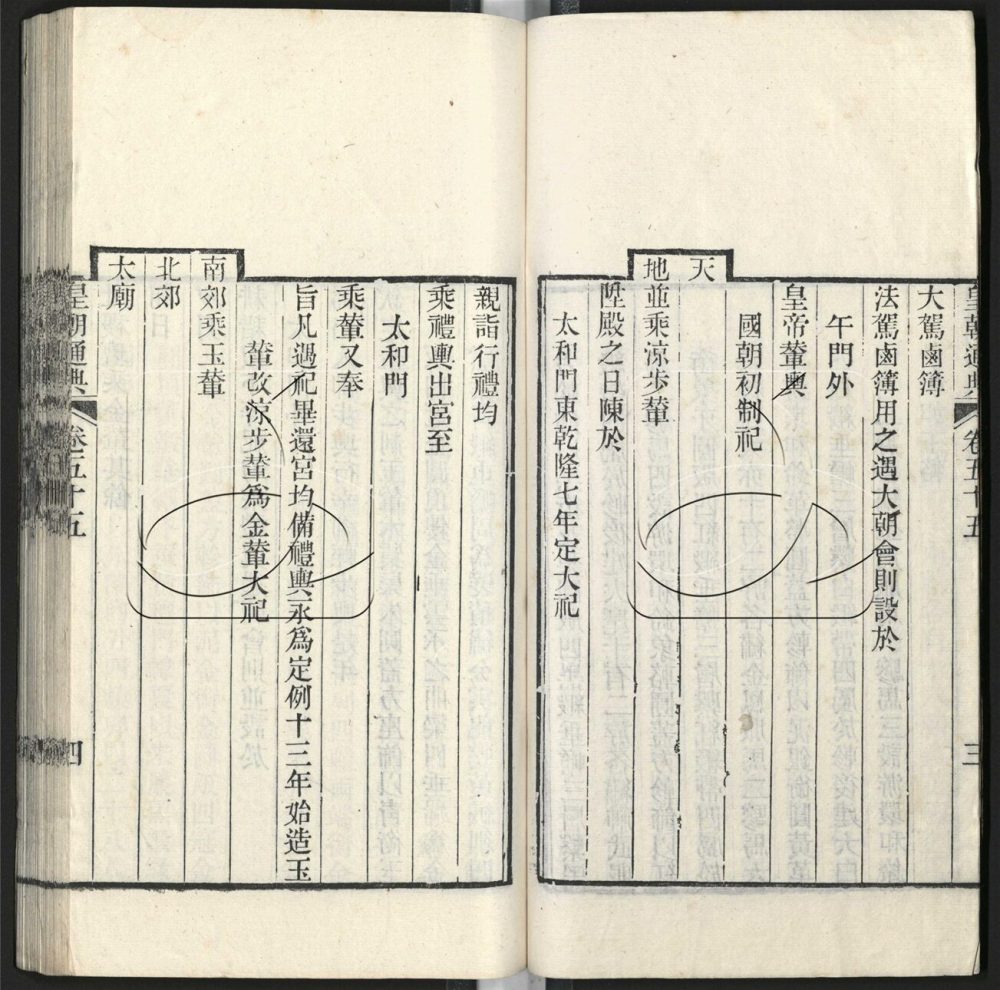 皇朝通典 卷五十五 三
大駕鹵簿
法駕鹵簿用之遇大朝會則設於
午門外
皇帝輦輿
國朝初制祀
天
地並乘涼步輦
陞殿之日陳於
太和門東乾隆七年定大祀
親詣行禮均
乘禮輿出宮至
太和門
乘輦又奉
旨凡遇祀畢還宮均備禮輿永爲定例十三年始造玉
輦改涼步輦爲金輦大祀
南郊乘玉輦
北郊
太廟
皇朝通典 卷五十五 四